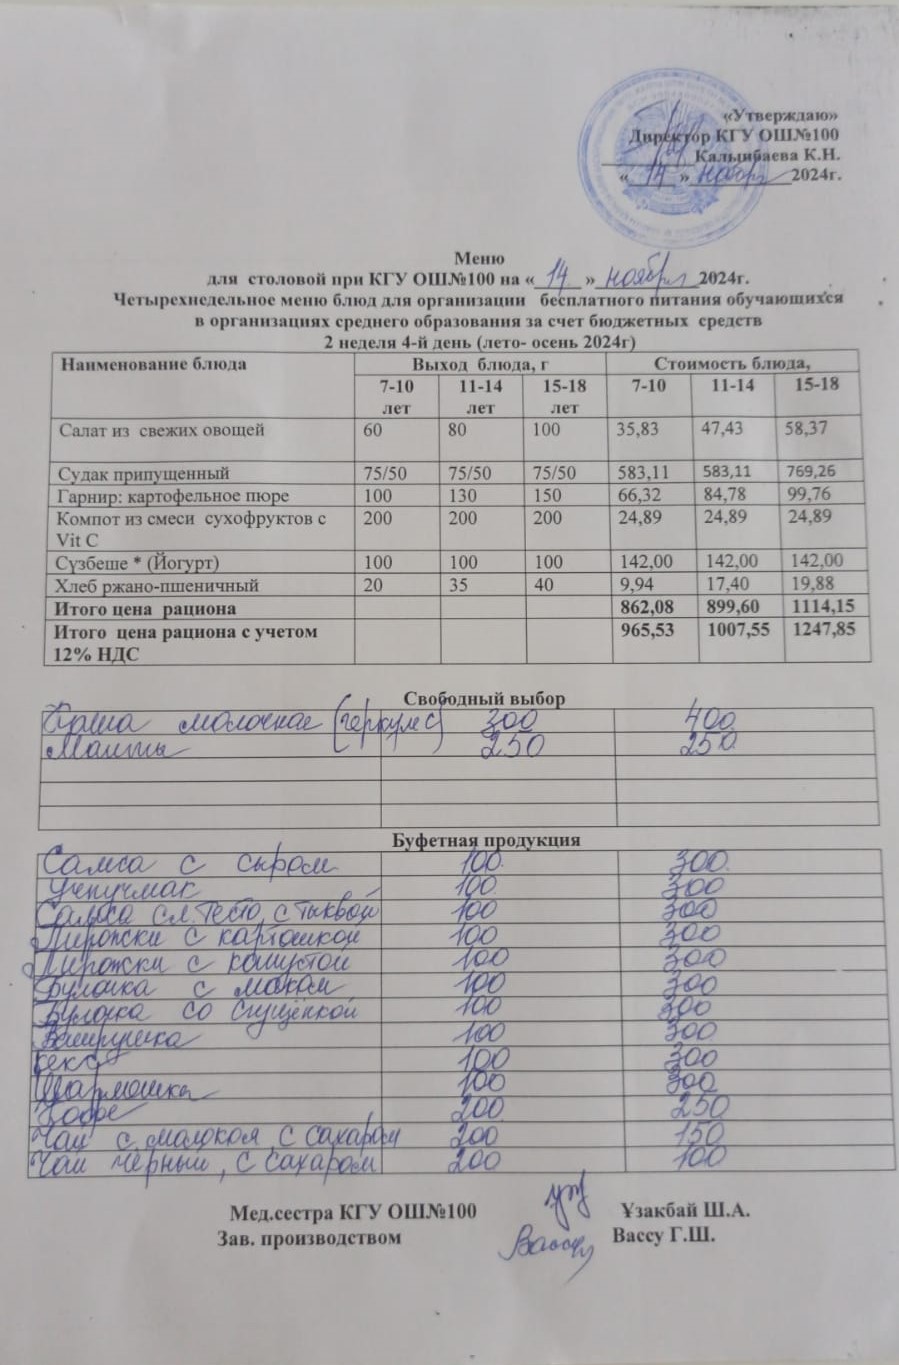 «Утверждаю»
Директор КГУ ОШ№100
Калымбаева К.Н.
« 14 » ноября 2024г.
Меню
для столовой при КГУ ОШ№100 на « 14 » ноября 2024г.
Четырехнедельное меню блюд для организации бесплатного питания обучающихся
в организациях среднего образования за счет бюджетных средств
2 неделя 4-й день (лето- осень 2024г)
Наименование блюда Выход блюда, г Стоимость блюда,
7-10 лет 11-14 лет 15-18 лет 7-10 11-14 15-18
Салат из свежих овощей 60 80 100 35,83 47,43 58,37
Судак припущенный 75/50 75/50 75/50 583,11 583,11 769,26
Гарнир: картофельное пюре 100 130 150 66,32 84,78 99,76
Компот из смеси сухофруктов с 200 200 200 24,89 24,89 24,89
Vit C
Сүзбеше * (Йогурт) 100 100 100 142,00 142,00 142,00
Хлеб ржано-пшеничный 20 35 40 9,94 17,40 19,88
Итого цена рациона 862,08 899,60 1114,15
Итого цена рациона с учетом 965,53 1007,55 1247,85
12% НДС
Свободный выбор
Каша молочная (геркулес) 300 400
Манты 250 250
Буфетная продукция
Самса с сыром 100 300
Учпучмак 100 300
Самса сл. тесто с тыквой 100 300
Пирожки с картошкой 100 300
Пирожки с капустой 100 300
Булочка с маком 100 300
Булочка со сгущенкой 100 300
Ватрушка 100 300
Кекс 100 300
100 300
200 250
Чай с молоком, с сахаром 200 150
Чай черный, с сахаром 200 100
Мед.сестра КГУ ОШ№100 Ұзакбай Ш.А.
Зав. производством Вассу Г.Ш.